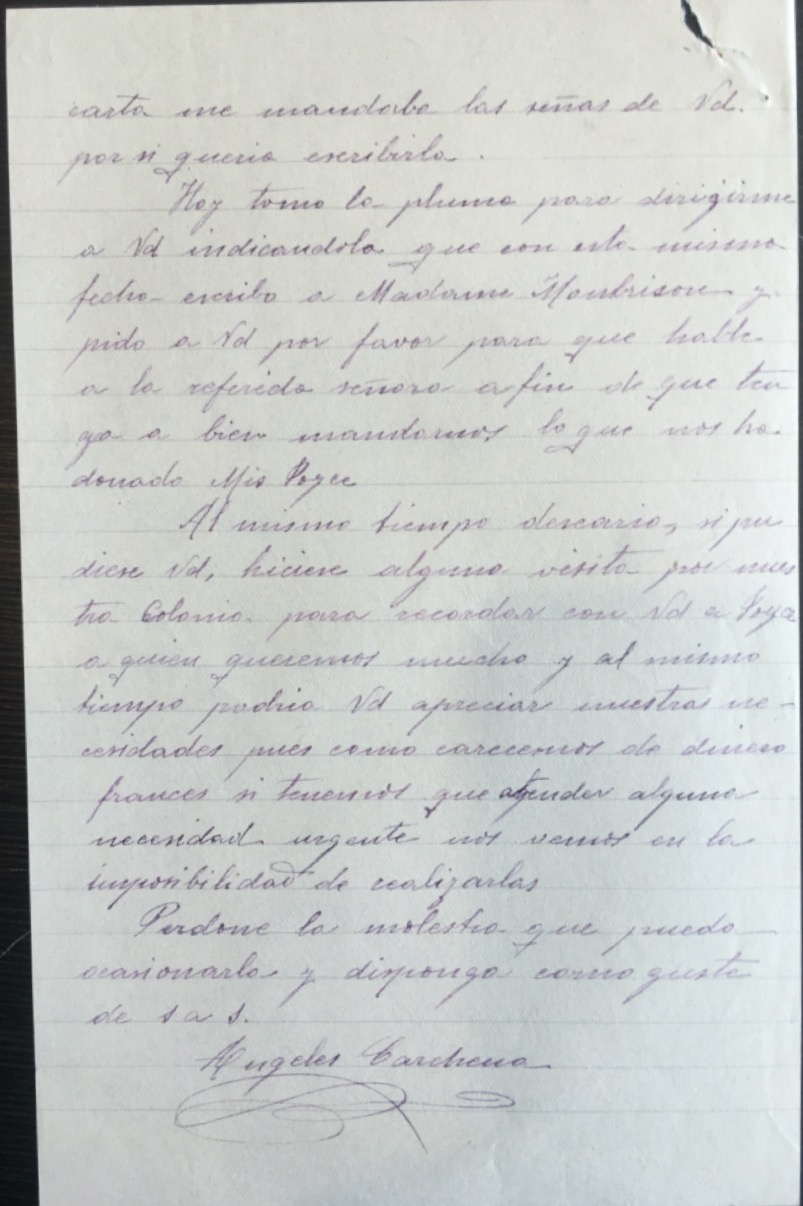 carta me mandaba las señas de Vd.
por si queria escribirla.
Hoy tomo la pluma para dirigirme
a Vd indicandola que con esta misma
fecha escribo a Madame Monbrison y
pido a Vd por favor para que hable
a la referida señora a fin de que ten
ga a bien mandarnos lo que nos ha
donado Mis
Al mismo tiempo desearia, si pu
diese Vd, hiciese alguna visita por nues
tra Colonia para recordar con Vd a
a quien queremos mucho y al mismo
tiempo podria Vd apreciar nuestras ne-
cesidades pues como carecemos de dinero
frances si tenemos que atender alguna
necesidad urgente nos vemos en la
imposibilidad de realizarlas
Perdone la molestia que pueda
ocasionarla y disponga como guste
de s a s.
Angeles